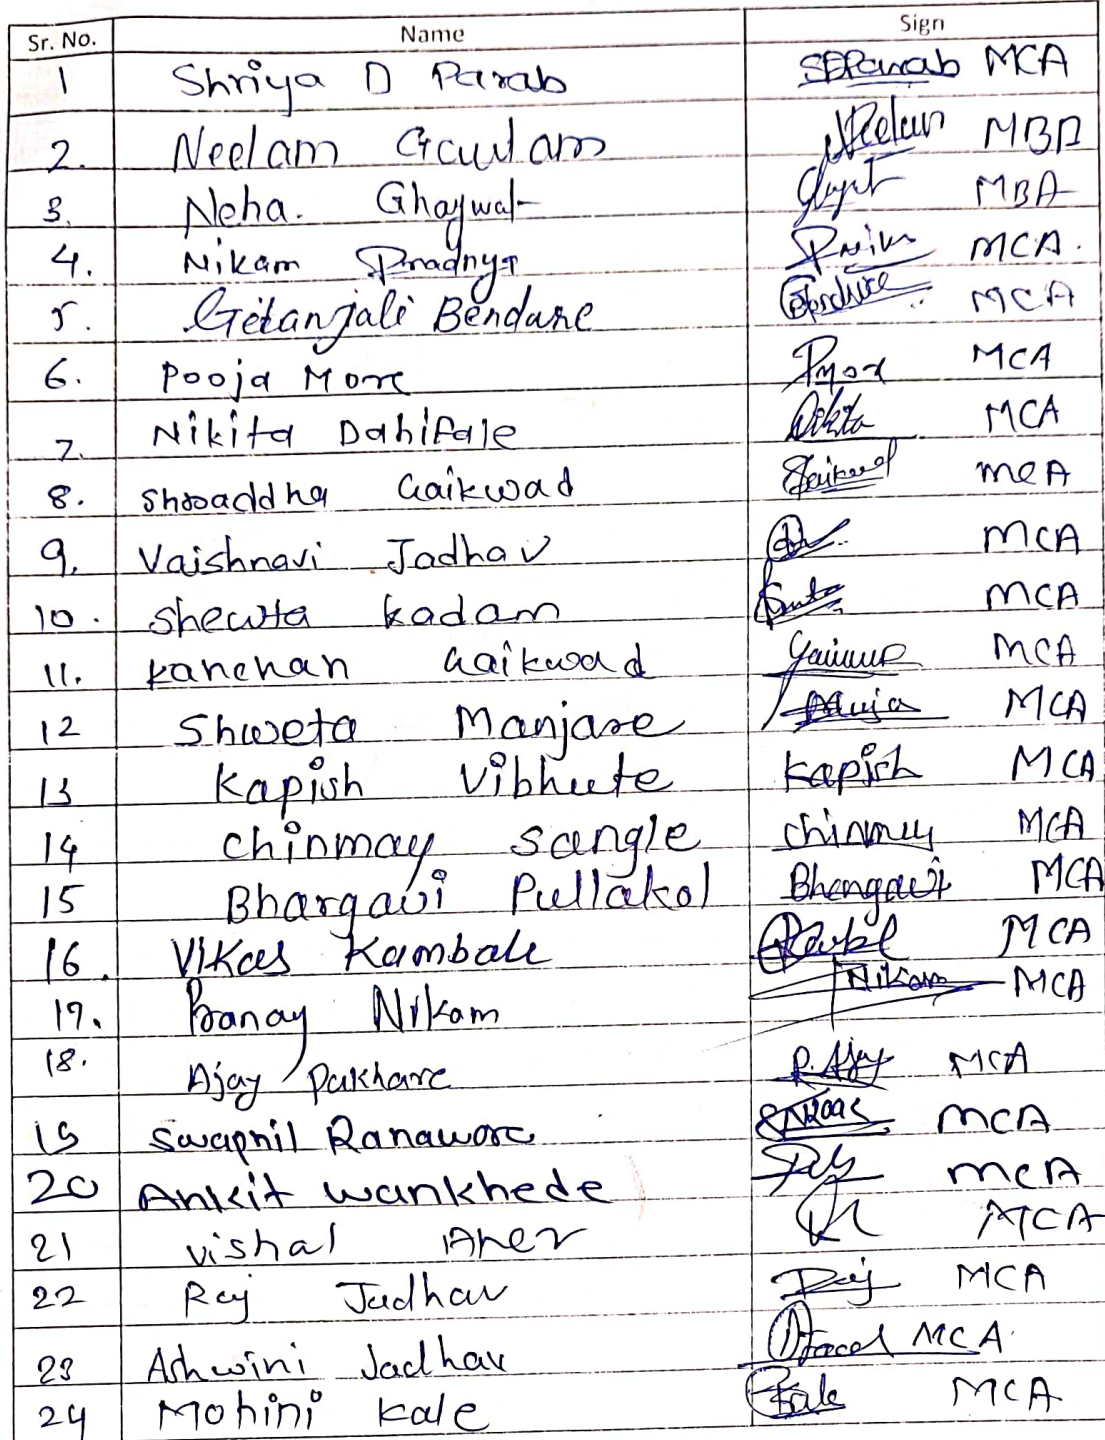 Sr. No. Name Sign
1 Shriya D Parab SDParab MCA
2. Neelam Gautam Neelam MBA
3. Neha. Ghaywat MBA
4. Nikam Pradnya MCA.
5. Getanjali Bendare MCA
6. Pooja More Pmore MCA
7. Nikita Dahifale Nikita MCA
8. Shraddha Gaikwad Gaikwad MCA
9. Vaishnavi Jadhav MCA
10. Shewta Kadam MCA
11. Kanchan Gaikwad MCA
12 Shweta Manjare MCA
13 Kapish Vibhute Kapish MCA
14 Chinmay Sangle Chinmay MCA
15 Bhargavi Pullakol Bhargavi MCA
16. Vikas Kambale MCA
17. Pranay Nikam Nikam MCA
18. Ajay Pakhare P. Ajay MCA
19 Swapnil Ranaware MCA
20 Ankit Wankhede MCA
21 Vishal Aher MCA
22 Raj Jadhav Raj MCA
23 Ashwini Jadhav MCA.
24 Mohini Kale Kale MCA